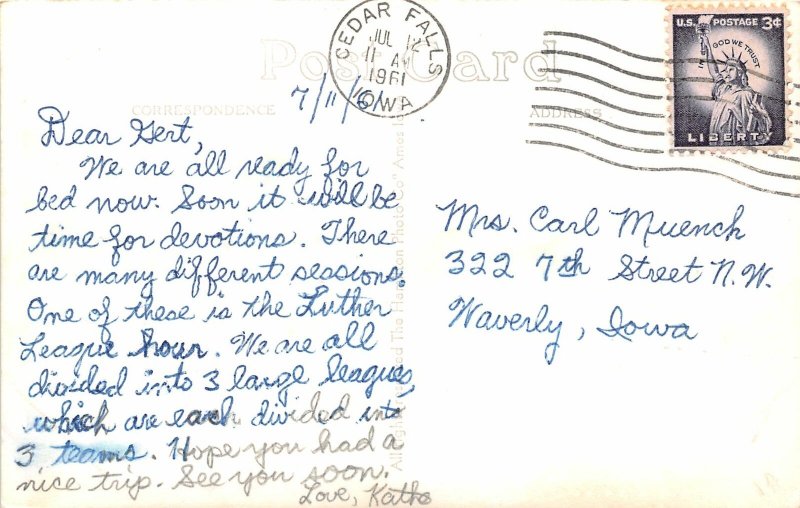 CEDAR FALLS
JUL 12
11 AM
1961
IOWA
U.S. POSTAGE 3¢
IN GOD WE TRUST
LIBERTY
Post Card
CORRESPONDENCE
ADDRESS
7/11/61
Dear Gert,
We are all ready for
bed now. Soon it will be
time for devotions. There
are many different sessions.
One of these is the Luther
League hour. We are all
divided into 3 large leagues,
which are each divided into
3 teams. Hope you had a
nice trip. See you soon.
Love, Kathe
Mrs. Carl Muench
322 7th Street N.W.
Waverly, Iowa
Photo Co" Amos